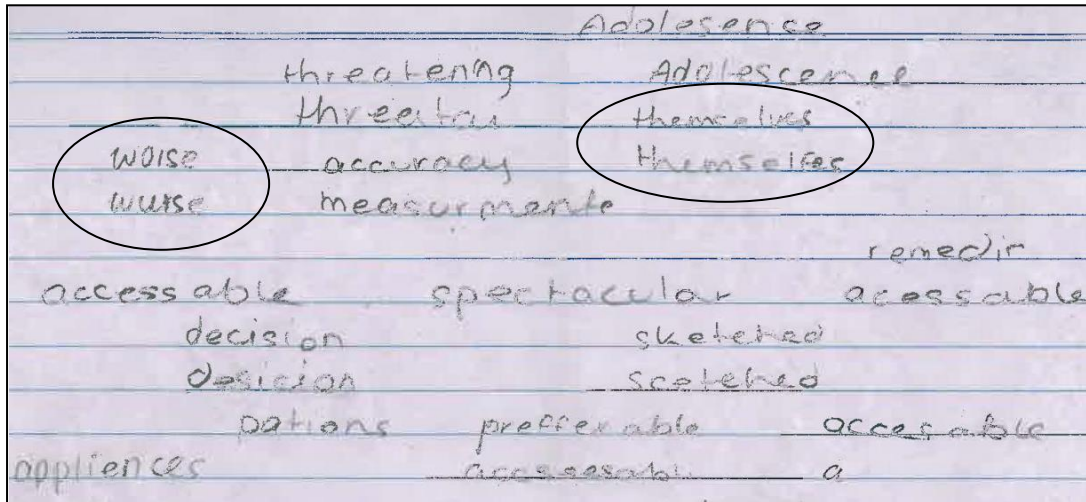 Adolesence
threatening Adolescence
threatau themselves
worse accuracy themselfes
wurse measurmente
remedir
accessable spectacular acessable
decision sketched
desicion scetched
pations prefferable accesable
appliences accssesabl a